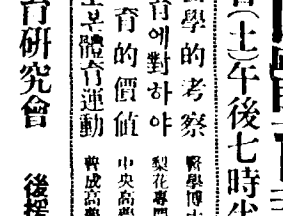 (土)午後七時
學的考察 醫學博
育에對하야 梨花專門
育的價値 中央高
로본體育運動 普成高
育硏究會 後援